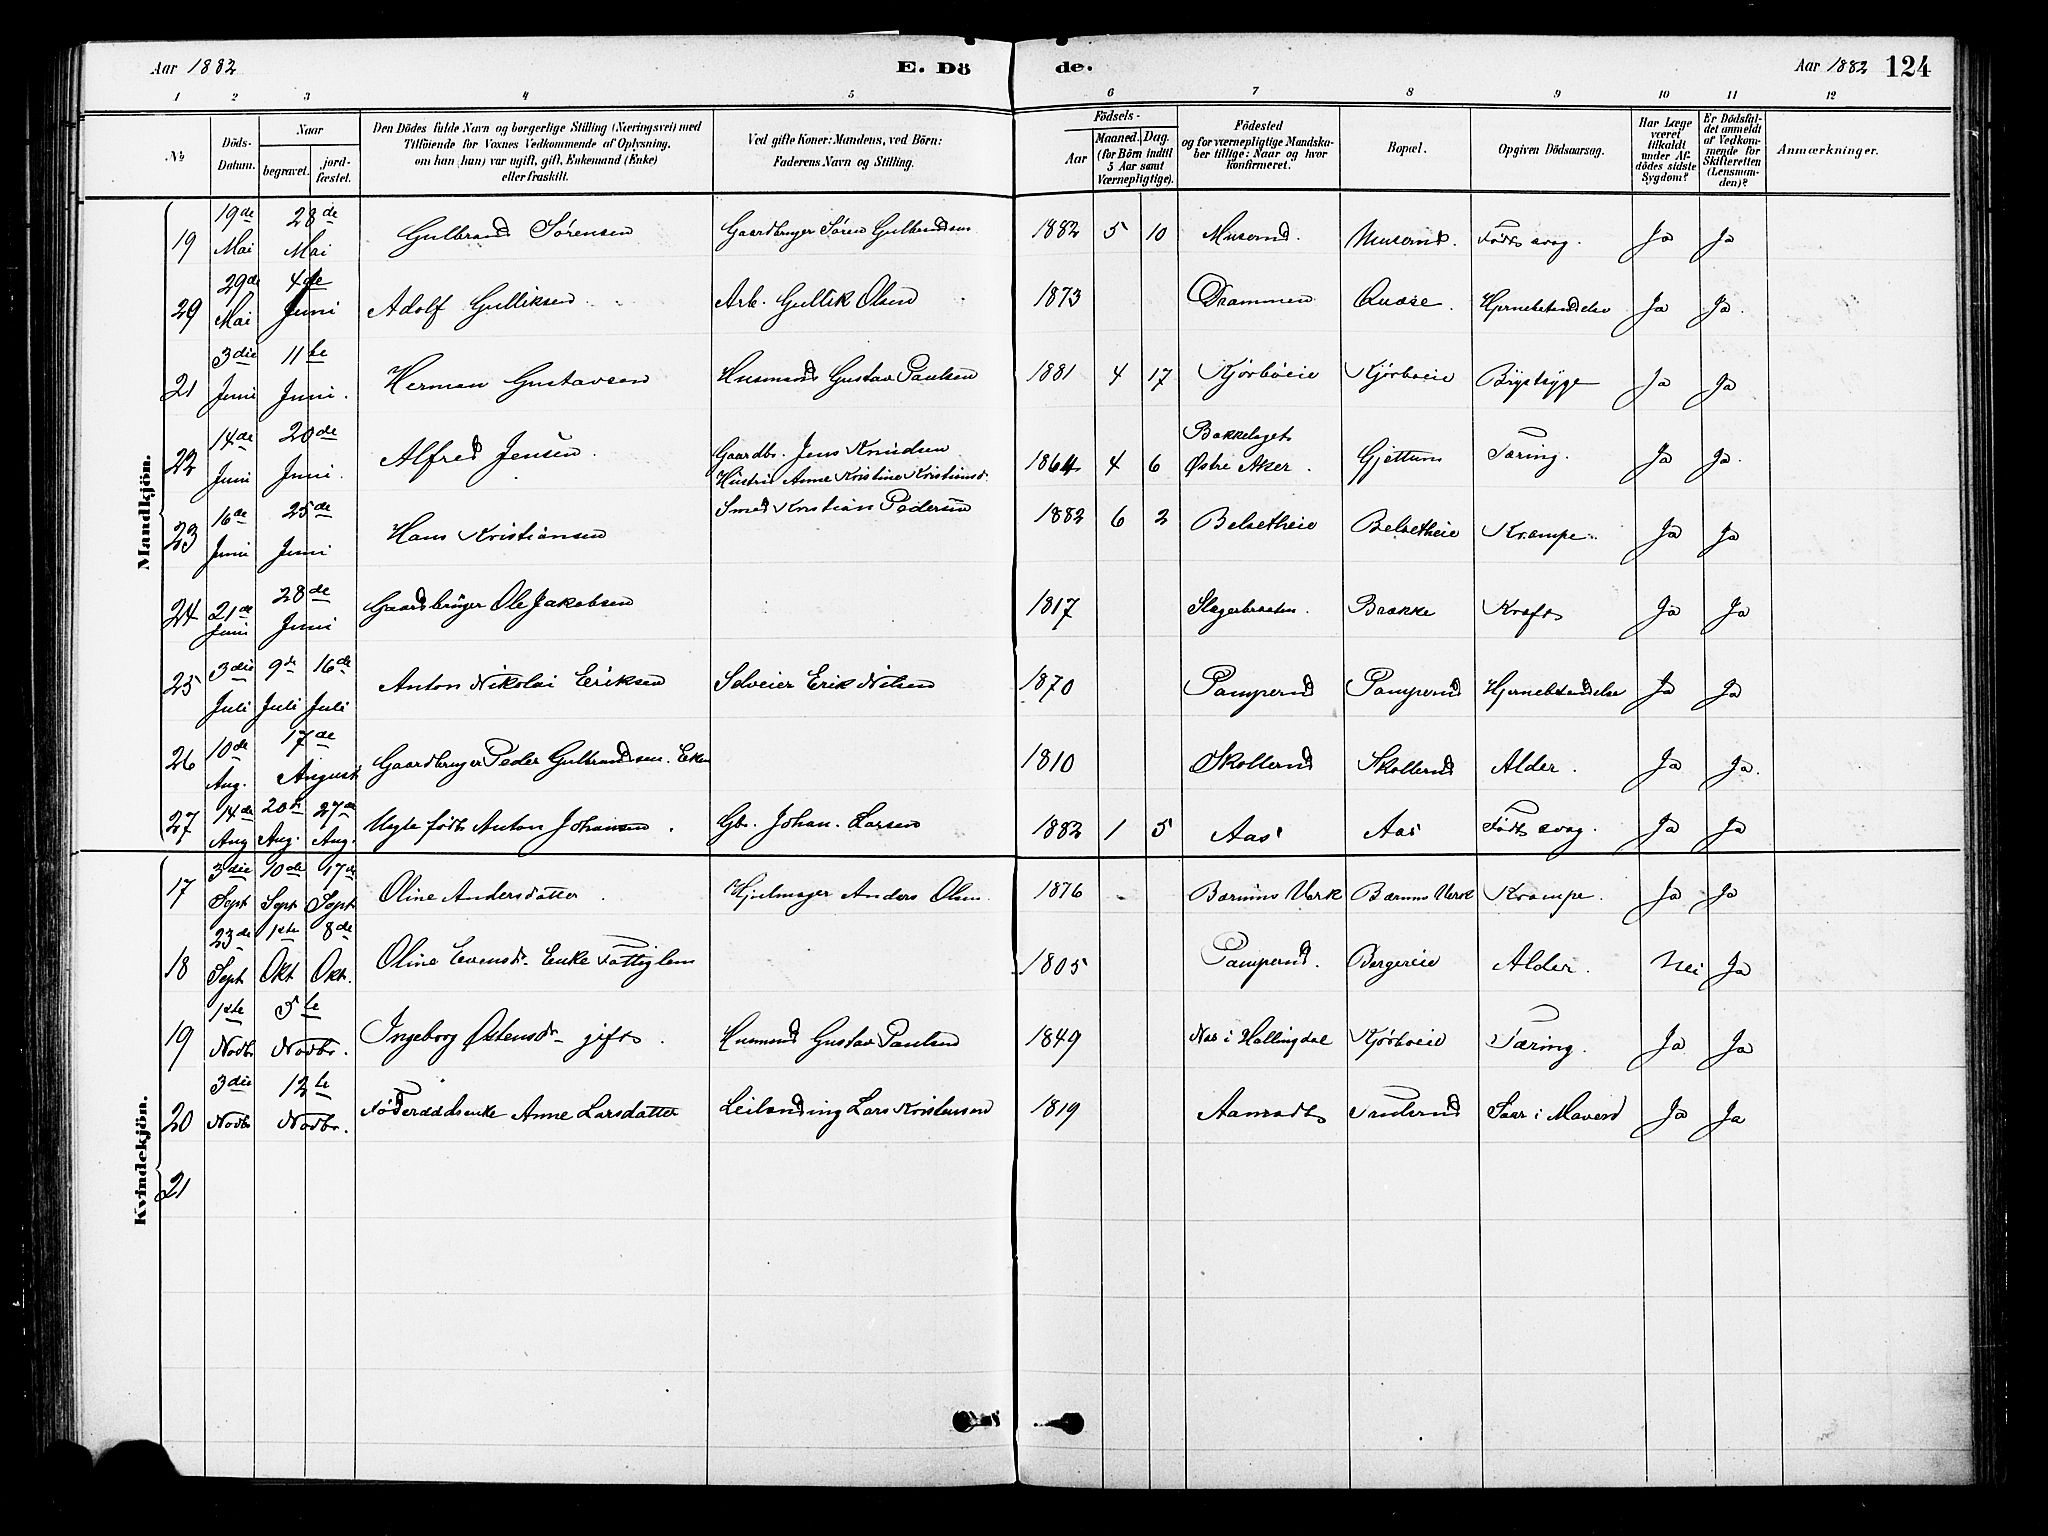 Aar 1882
E. Dö
de.
Aar 1882 124
1 2 3 4 5 6 7 8 9 10 11 12
№ Döds-Datum. Naar begravet. jord-fæstet. Den Dödes fulde Navn og borgerlige Stilling (Næringsvei) med Tilföiende for Voxnes Vedkommende af Oplysning, om han (hun) var ugift, gift, Enkemand (Enke) eller fraskilt. Ved gifte Koner: Mandens, ved Börn: Faderens Navn og Stilling. Födsels- Aar Maaned. Dag. (for Börn indtil 5 Aar samt Værnepligtige). Födested og for værnepligtige Mandskaber tillige: Naar og hvor konfirmeret. Bopæl. Opgiven Dödsaarsag. Har Læge været tilkaldt under Afdödes sidste Sygdom? Er Dödsfaldet anmeldt af Vedkommende for Skifteretten (Lensmanden)? Anmærkninger.
Mandkjön.
19 19de Mai 28de Mai Gulbrand Sørensen Gaardbruger Søren Gulbrandsen 1882 5 10 Muserud. Muserud. Født svag. Ja Ja
29 29de Mai 4de Juni Adolf Gulliksen Arb. Gullik Olsen 1873 Drammen Hjernebetændelse Ja Ja.
21 3die Juni 11te Juni. Herman Gustavsen Husmand Gustav Paulsen 1881 4 17 Kjørboeie Kjørboeie Brystsyge Ja Ja
22 14de Juni 20de Juni. Alfred Jensen. Gaardbr. Jens Knudsen Hustru Anne Kristine Kristiansd. 1864 4 6 Bakkelaget Østre Aker. Gjettum Tæring. Ja Ja.
23 16de Juni 25de Juni Hans Kristiansen Smed Kristian Pedersen 1882 6 2 Belsetheie Belsetheie Krampe. Ja Ja
24 21de Juni 28de Juni Gaardbruger Ole Jakobsen 1817 Slagerbraaten. Bakke Kræft Ja Ja
25 3die Juli 9de Juli 16de Juli Anton Nikolai Eriksen Selveier Erik Nilsen 1870 Pamperud Pamperud Hjernebetændelse Ja Ja
26 10de Aug. 17de August Gaardbruger Peder Gulbrandsen. Enkem 1810 Skollerud Skollerud Alder. Ja Ja.
27 14de Aug 20de Aug. 27de Aug. Uegte født Anton Johansen. Gb. Johan. Larsen 1882 1 5 Aas Aas Født svag. Ja Ja
Kvindekjön.
17 3die Sept 10de Sept 17de Sept Oline Andersdatter. Hjulmager Anders Olsen. 1876 Bærums Værk Bærums Værk Krampe. Ja Ja
18 23de Sept 1ste Okt 8de Okt. Oline Evensdr. Enke Fattiglem 1805 Pamperud. Bergereie Alder. Nei Ja
19 1ste Novbr 5te Novbr. Ingeborg Østensdr gift. Husmand Gustav Paulsen 1849 Næs i Hallingdal Kjørboeie Tæring. Ja Ja
20 3die Novbr 12te Novbr. Føderaadsenke Anne Larsdatter Leilænding Lars Kristensen 1819 Aamodt Tanlerud Saar i Maven Ja Ja
21